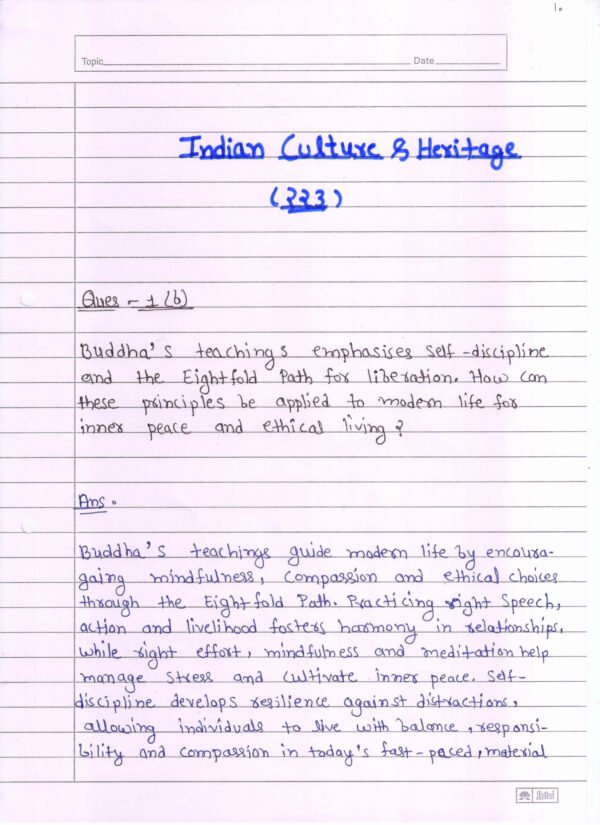 1.
Topic Date
Indian Culture & Heritage
(223)
Ques - 1 (b)
Buddha's teachings emphasises self-discipline
and the Eightfold Path for liberation. How can
these principles be applied to modern life for
inner peace and ethical living?
Ans.
Buddha's teachings guide modern life by encoura-
gaing mindfulness, compassion and ethical choices
through the Eightfold Path. Practicing right Speech,
action and livelihood fosters harmony in relationships.
while right effort, mindfulness and meditation help
manage stress and cultivate inner peace. Self-
discipline develops resilience against distractions,
allowing individuals to live with balance, responsi-
bility and compassion in today's fast-paced, material